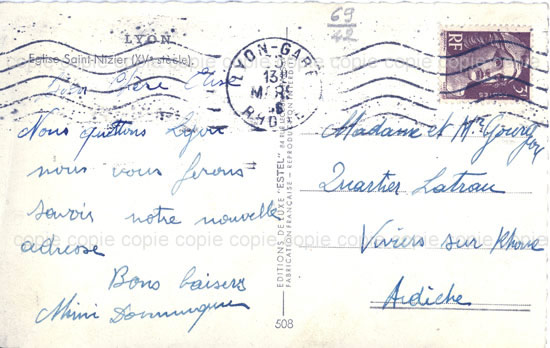 LYON
Eglise Saint-Nizier (XVe siècle)
69
42
LYON-GARE
13
MARS
RHONE
RF
Nous quittons Lyon
nous vous ferons
savoir notre nouvelle
adresse
Bons baisers
Mimi Dominique
EDITIONS DE LUXE "ESTEL"
FABRICATION FRANÇAISE - REPRODUCTION INTERDITE
508
Madame et Mr
Quartier Latrau
Viviers sur Rhone
Ardèche
copie copie copie copie copie copie copie copie